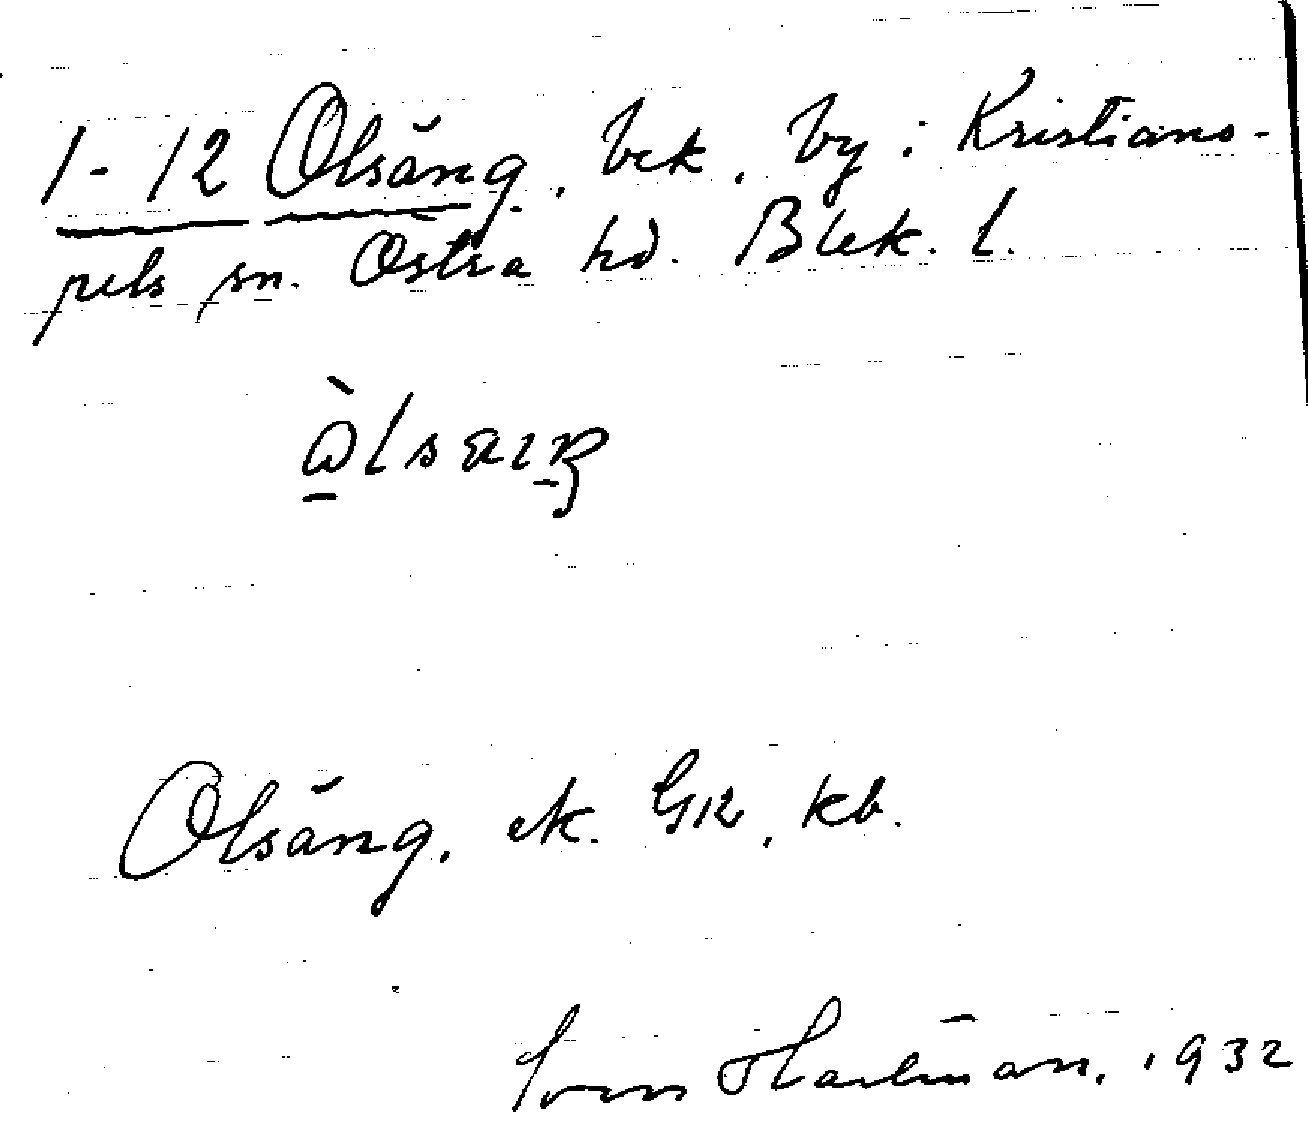 1-12 Olsäng, bek. by i Kristiano-
pels sn. Östra hd. Blek. l.
Olsäng, ek. GK, kb.
Sven Hartman, 1932